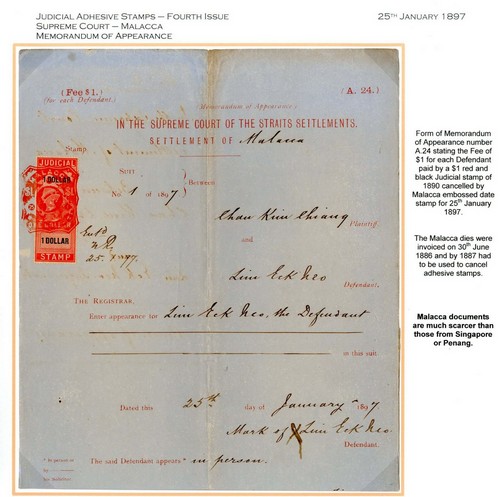 JUDICIAL ADHESIVE STAMPS – FOURTH ISSUE
SUPREME COURT – MALACCA
MEMORANDUM OF APPEARANCE
25TH JANUARY 1897
(Fee $1.)
(for each Defendant.)
(A. 24.)
(Memorandum of Appearance)
IN THE SUPREME COURT OF THE STRAITS SETTLEMENTS.
SETTLEMENT OF Malacca
Stamp.
SUIT
No. 1 of 1897
Between
JUDICIAL
1 DOLLAR
1 DOLLAR
STAMP
Chan Kim Chiang
Plaintiff.
and
25.
Lim Eck Neo
Defendant.
THE REGISTRAR,
Enter appearance for Lim Eck Neo, the Defendant
in this suit.
Dated this 25th day of January 1897
Mark of X Lim Eck Neo
Defendant.
* In person or
by
his Solicitor.
The said Defendant appears * in person.
Form of Memorandum
of Appearance number
A.24 stating the Fee of
$1 for each Defendant
paid by a $1 red and
black Judicial stamp of
1890 cancelled by
Malacca embossed date
stamp for 25th January
1897.
The Malacca dies were
invoiced on 30th June
1886 and by 1887 had
to be used to cancel
adhesive stamps.
Malacca documents
are much scarcer than
those from Singapore
or Penang.